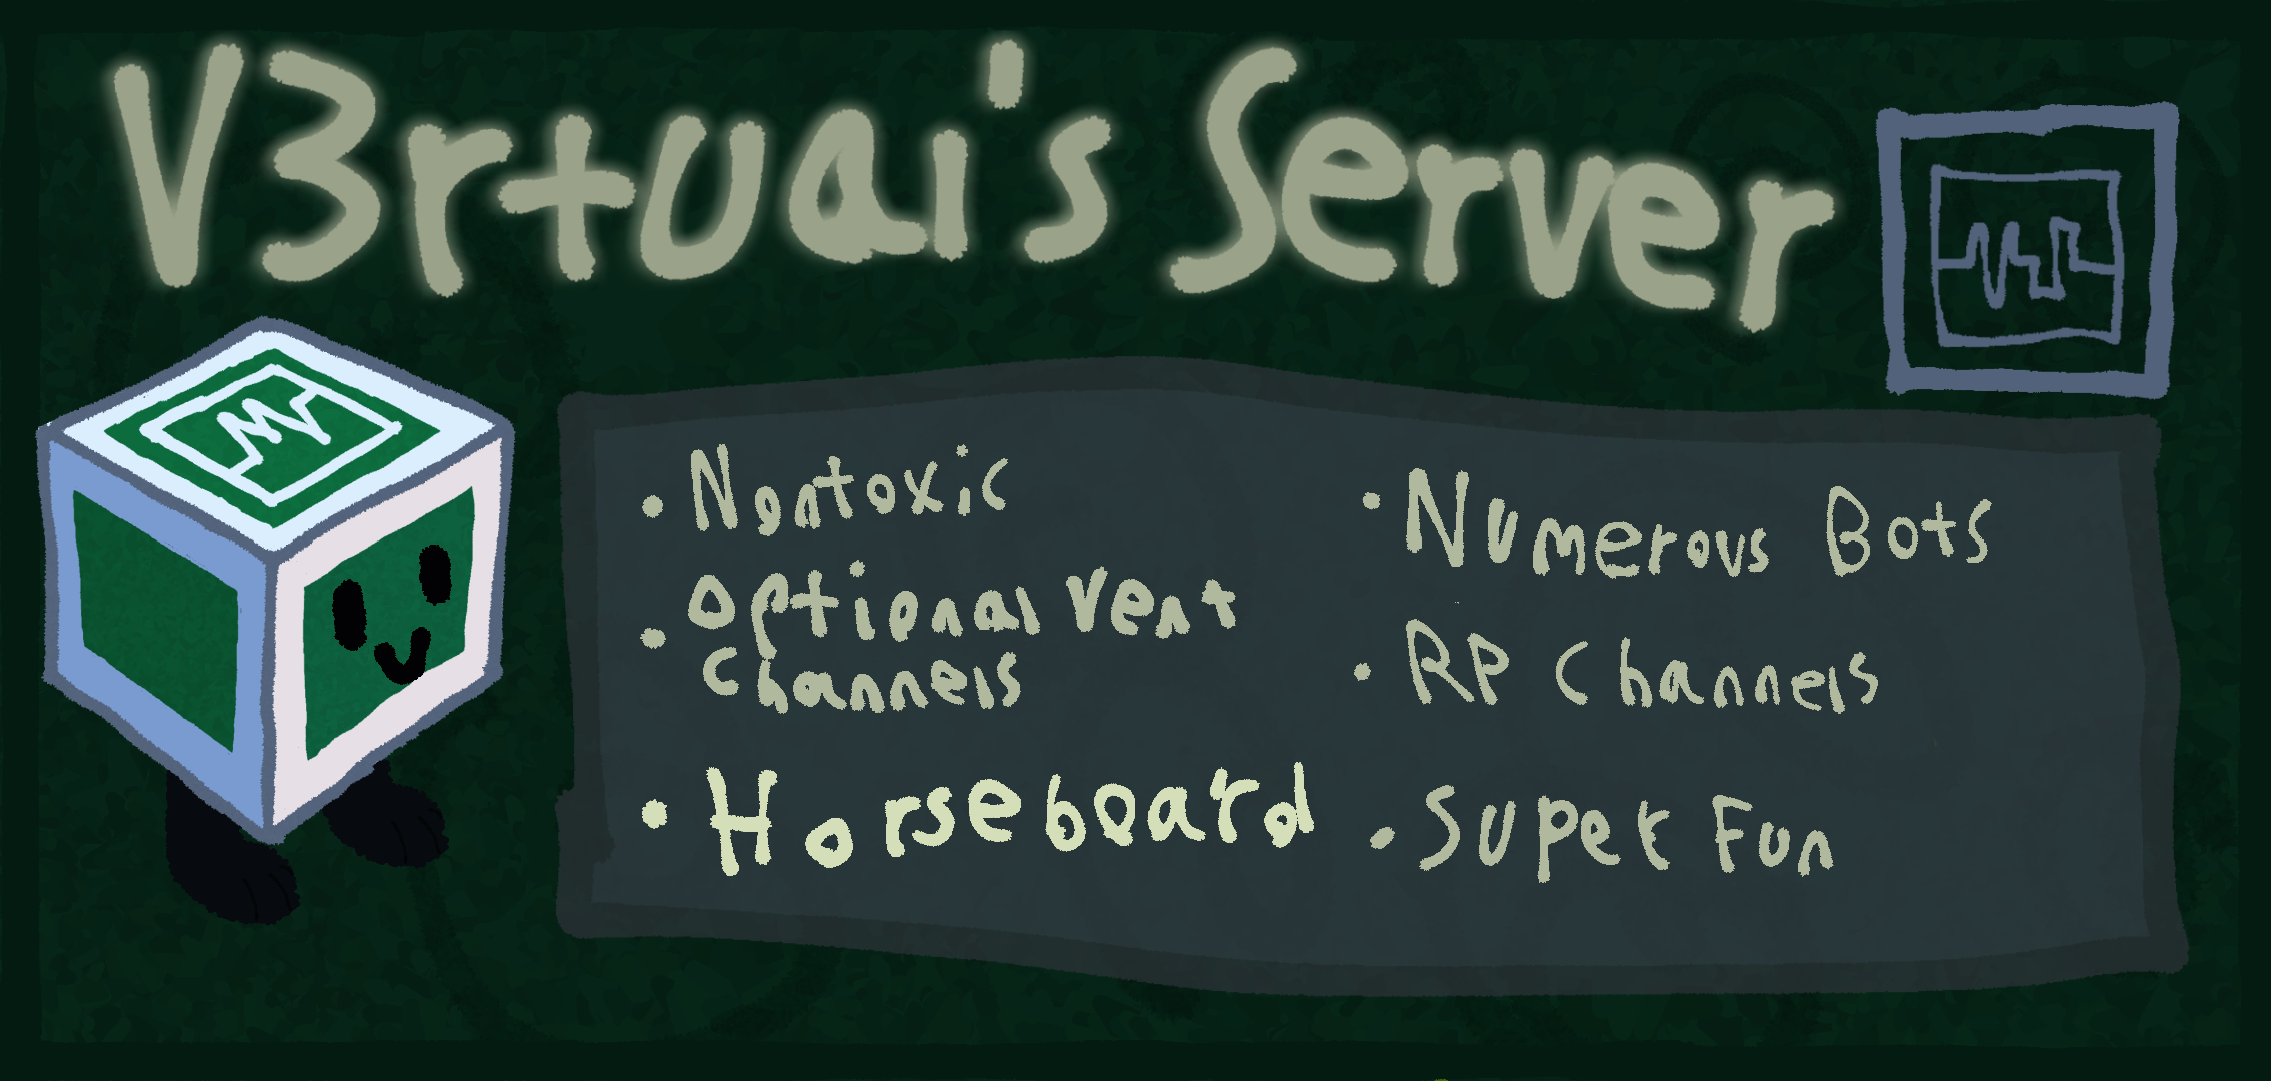 V3rtuai's Server
• Nontoxic
• Optional Vent
Channels
• Horseboard
• Numerous Bots
• RP Channels
• Super Fun